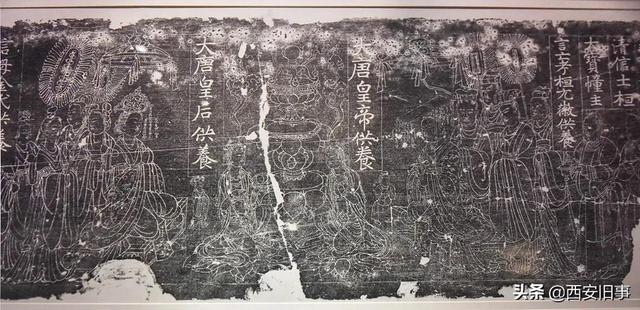 清信士桓
大寶幢主
言亡考桓徽供養
大唐皇帝供養
大唐皇后供養
信母氏供養
头条 @西安旧事